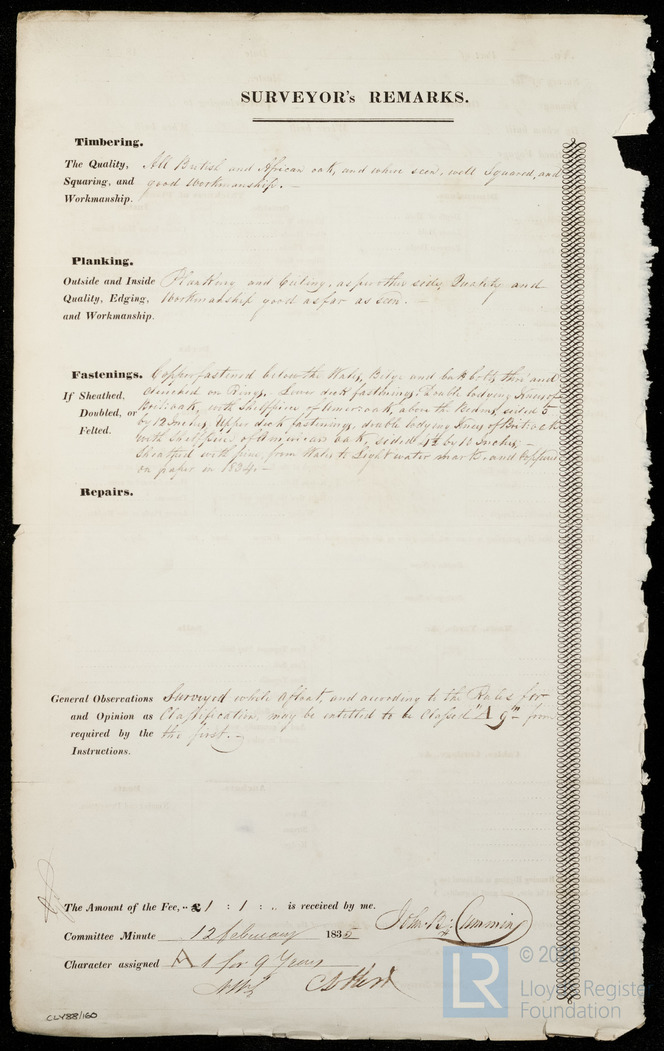 SURVEYOR's REMARKS.
Timbering.
The Quality, Squaring, and Workmanship.
All British and African oak, and where seen, well Squared, and
good Workmanship. —
Planking.
Outside and Inside Quality, Edging, and Workmanship.
Planking and Ceiling, as per other side, Quality and
Workmanship good as far as seen. —
Fastenings.
If Sheathed, Doubled, or Felted.
Copperfastened below the Wales, Bilge and butt bolts thro' and
clenched on Rings. Lower deck fastenings, Double lodging Knees of
Brit: oak, with Shelfpiece of Amer: oak, above the Beams, sided 5
by 12 Inches, Upper deck fastenings, double lodging Knees of Brit: oak
with Shelfpiece of American oak, sided 4½ by 10 Inches, —
Sheathed with pine from Wales to Light water mark, and Coppered
on paper in 1834. —
Repairs.
General Observations and Opinion as required by the Instructions.
Surveyed while afloat, and according to the Rules for
Classification, may be entitled to be Classed "A 9" – from
the first. —
The Amount of the Fee, .. £1 : 1 : .. is received by me.
John B: Cumming
Committee Minute 12 February 1835
Character assigned A 1 for 9 Years
CLY88/160
LR
© 20
Lloyd's Register
Foundation